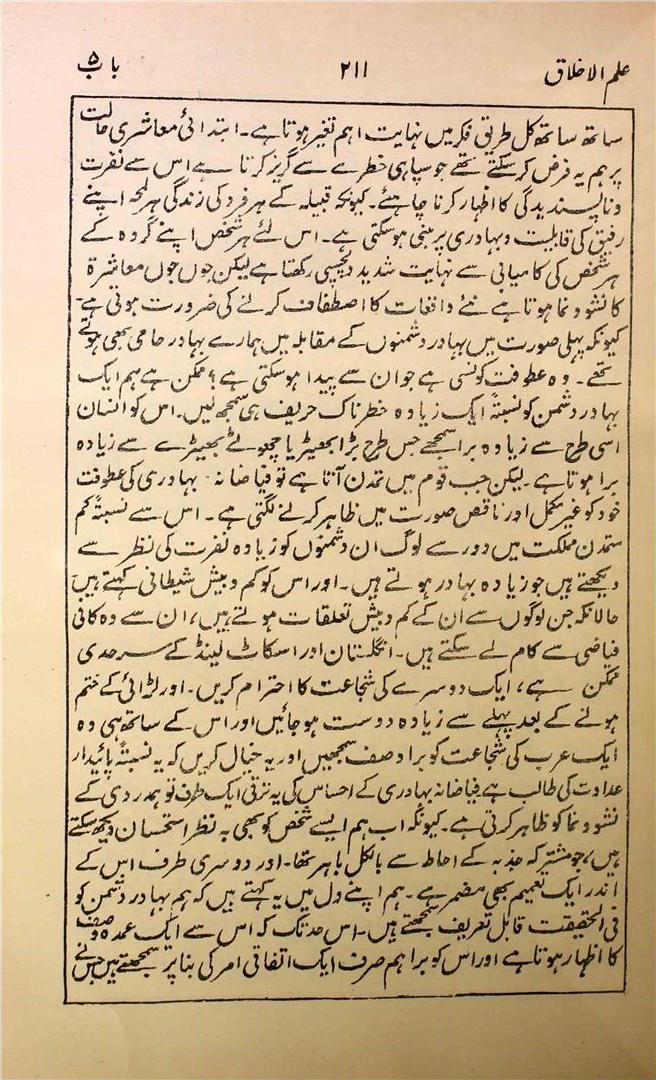 علم الاخلاق ۲۱۱ باب ۵
ساتھ ساتھ کل طریق فکر میں نہایت اہم تغیر ہوتا ہے۔ ابتدائی معاشری حالت
پر ہم یہ فرض کر سکتے تھے جو سپاہی خطرے سے گریز کرتا ہے اس سے نفرت
و ناپسندیدگی کا اظہار کرنا چاہئے۔ کیونکہ قبیلہ کے ہر فرد کی زندگی ہر لمحہ اپنے
رفیق کی قابلیت و بہادری پر مبنی ہو سکتی ہے۔ اس لئے ہر شخص اپنے گروہ کے
ہر شخص کی کامیابی سے نہایت شدید دلچسپی رکھتا ہے لیکن جوں جوں معاشرۃ
کا نشو و نما ہوتا ہے نئے واقعات کا اصطفاف کرنے کی ضرورت ہوتی ہے۔
کیونکہ پہلی صورت میں بہادر دشمنوں کے مقابلہ میں ہمارے بہادر حامی بھی ہوتے
تھے۔ وہ عطوفت کونسی ہے جو ان سے پیدا ہو سکتی ہے؟ ممکن ہے ہم ایک
بہادر دشمن کو نسبتۃً ایک زیادہ خطرناک حریف ہی سمجھ لیں۔ اس کو انسان
اسی طرح سے زیادہ برا سمجھے جس طرح بڑا بھیڑیا چھوٹے بھیڑے سے زیادہ
برا ہوتا ہے۔ لیکن جب قوم میں تمدن آتا ہے تو فیاضانہ بہادری کی عطوفت
خود کو غیر مکمل اور ناقص صورت میں ظاہر کرنے لگتی ہے۔ اس سے نسبتۃً کم
متمدن مملکت میں دور سے لوگ ان دشمنوں کو زیادہ نفرت کی نظر سے
دیکھتے ہیں جو زیادہ بہادر ہوتے ہیں۔ اور اس کو کم و بیش شیطانی کہتے ہیں
حالانکہ جن لوگوں سے ان کے کم و بیش تعلقات ہوتے ہیں، ان سے وہ کافی
فیاضی سے کام لے سکتے ہیں۔ انگلستان اور اسکاٹ لینڈ کے سرحدی
ممکن ہے، ایک دوسرے کی شجاعت کا احترام کریں۔ اور لڑائی کے ختم
ہونے کے بعد پہلے سے زیادہ دوست ہو جائیں اور اس کے ساتھ ہی وہ
ایک عرب کی شجاعت کو برا وصف سمجھیں اور یہ خیال کریں کہ یہ نسبتۃً پائیدار
عداوت کی طالب ہے فیاضانہ بہادری کے احساس کی یہ ترقی ایک طرف تو ہمدردی کے
نشو و نما کو ظاہر کرتی ہے۔ کیونکہ اب ہم ایسے شخص کو بھی بہ نظر استحسان دیکھ سکتے
ہیں، جو مشترکہ جذبہ کے احاطہ سے بالکل باہر تھا۔ اور دوسری طرف اس کے
اندر ایک تعمیم بھی مضمر ہے۔ ہم اپنے دل میں یہ کہتے ہیں کہ ہم بہادر دشمن کو
فی الحقیقت قابل تعریف سمجھتے ہیں۔ اس حد تک کہ اس سے ایک عمدہ وصف
کا اظہار ہوتا ہے اور اس کو برا ہم صرف ایک اتفاقی امر کی بنا پر سمجھتے ہیں جس نے